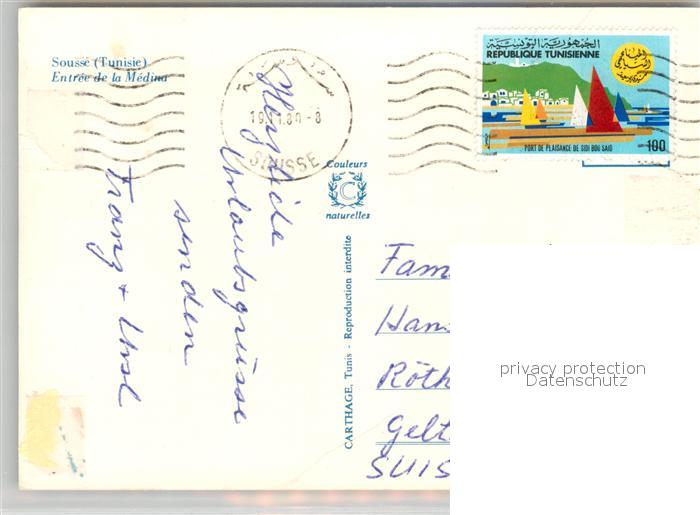 Sousse (Tunisie)
Entrée de la Médina
الجمهورية التونسية
REPUBLIQUE TUNISIENNE
PORT DE PLAISANCE DE SIDI BOU SAID
100
سوسة
19.11.80-8
SOUSSE
Couleurs
C
naturelles
CARTHAGE, Tunis - Reproduction interdite
Herzliche
Urlaubsgrüsse
senden
Franz + Ursl
Fam
Han
Röth
Gelt
SUIS
privacy protection
Datenschutz